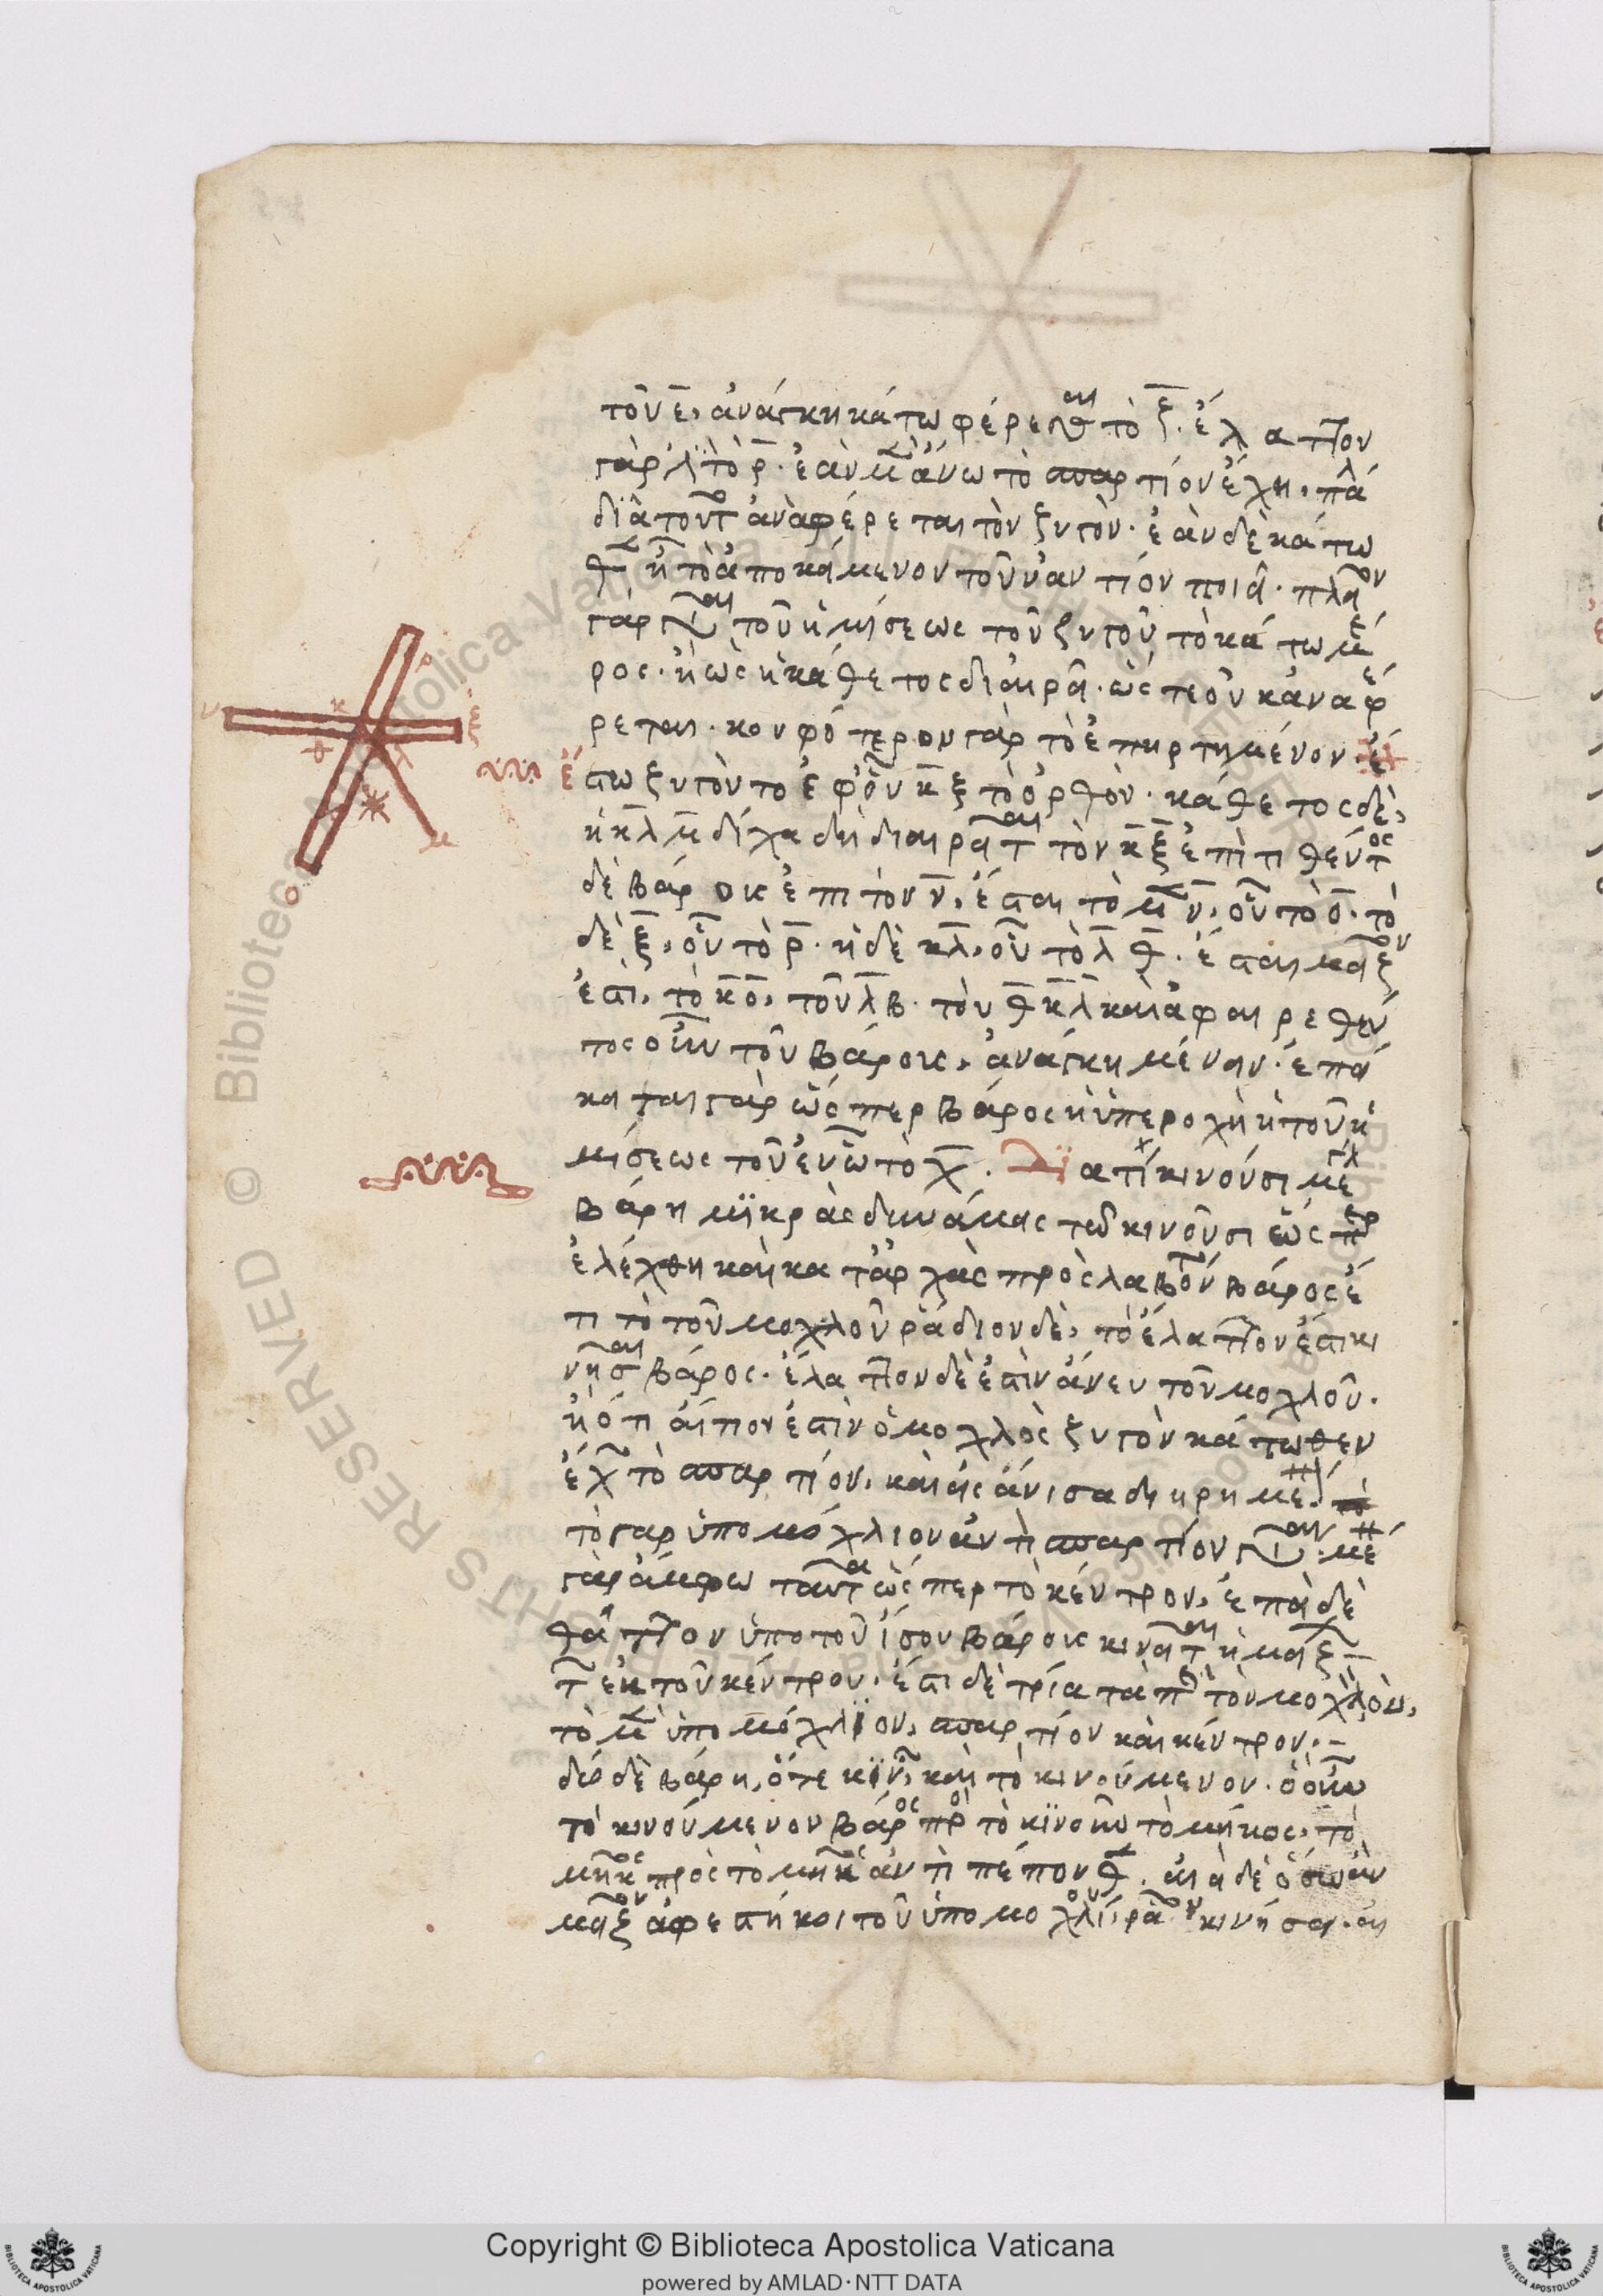 τοῦ ε, ἀνάγκη κάτω φέρεσθαι τὸ ξ. ἔλαττον
γάρ ἐστι τὸ ρ. ἐὰν μὲν ἄνω τὸ σπαρτίον ἔχη, πάλ
διὰ τοῦτο ἀναφέρεται τὸν ζυγὸν. ἐὰν δὲ κάτω
τὸ ὑποκείμενον τοὐναντίον ποιεῖ. πλεῖον
γὰρ γίνεται τοῦ ἡμίσεως τοῦ ζυγοῦ τὸ κάτω μέ
ρος. ἢ ὡς ἡ κάθετος διαιρεῖ. ὥστε οὐκ ἀναφέ
ρεται. κουφότερον γὰρ τὸ ἐπηρτημένον. ἔ
στω ζυγὸν τὸ ἐφ οὗ ν κ ξ τὸ ὀρθόν. κάθετος δὲ,
ἡ κ λ μ δίχα δὴ διαιρεῖται τὸν κ ξ ἐπιτιθέντος
δὲ βάρους ἐπὶ τὸν ν, ἔσται τὸ μὲν ν, οὗ τὸ ο. τὸ
δὲ ξ, οὗ τὸ ρ. ἡ δὲ κλ, οὗ τὸ λ θ. ἔσται μεῖζον
ἐστι, τὸ κ ο, τοῦ λ β. τὸν θ κ λ καὶ ἀφαιρεθέν
τος οὖν τοῦ βάρους, ἀνάγκη μένειν. ἐπεί
κειται γὰρ ὥσπερ βάρος ἡ ὑπεροχὴ ἡ τοῦ ἡ
μίσεως τοῦ ἐν ᾧ τὸ χ. Διατί κινούσι μεγάλ
βάρη μικρὰς δυνάμεις τῶ κινοῦσι ὥσπερ
ἐλέχθη καὶ κατ ἀρχὰς προσλαβὸν βάρος ἔ
τι τὸ τοῦ μοχλοῦ ῥάδιον δὲ, τὸ ἔλαττον ἐστι κι
νῆσαι βάρος. ἔλαττον δὲ ἐστὶν ἄνευ τοῦ μοχλοῦ.
ἢ ὅτι αἴτιον ἐστὶν ὁ μοχλὸς ζυγὸν κάτωθεν
ἔχων τὸ σπαρτίον, καὶ εἰς ἄνισα διῃρημέ
τὸ γαρ ὑπομόχλιον ἀντὶ σπαρτίου γίνεται. μέ
γὰρ ἄμφω ταῦτα ὥσπερ τὸ κέντρον, ἐπεὶ δὲ
θᾶττον ὑπὸ τοῦ ἴσου βάρους κινεῖται ἡ μείζων
τῶν ἐκ τοῦ κέντρου. ἔστι δὲ τρία τὰ περὶ τὸν μοχλὸν,
τὸ μὲν ὑπομόχλιον, σπαρτίον καὶ κέντρον.
δύο δὲ βάρη, ὅτε κινῶν, καὶ τὸ κινούμενον. ὃ οὖν
τὸ κινούμενον βάρος πρὸς τὸ κινοῦν τὸ μῆκος, τὸ
μῆκος πρὸς τὸ μῆκος ἀντιπέπονθεν. αἰεὶ δὲ ὅσω ἂν
μεῖζον ἀφεστήκοι τοῦ ὑπομοχλίου, ῥᾷον κινήσει. αι
ν κ ξ ρ θ λ ο μ